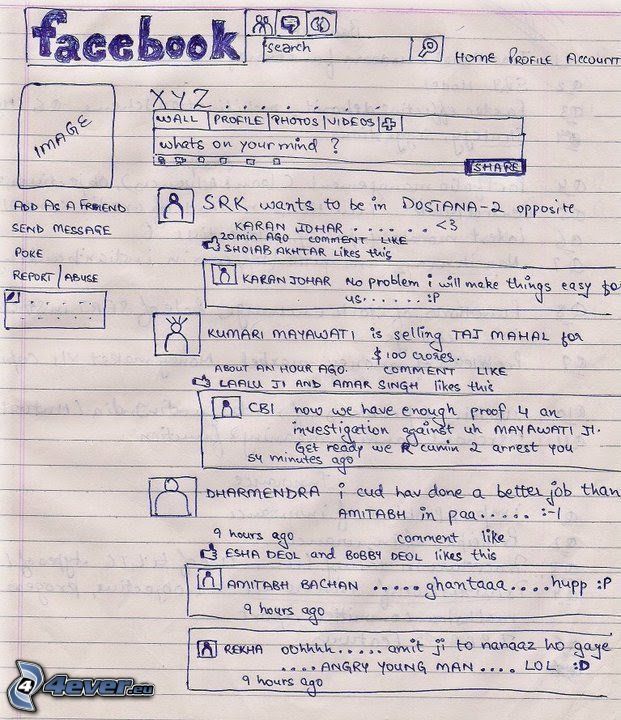 facebook
search
HOME PROFILE ACCOUNT
XYZ . . . . . . . .
WALL PROFILE PHOTOS VIDEOS
IMAGE
whats on your mind ?
SHARE
ADD AS A FRIEND
SEND MESSAGE
POKE
REPORT / ABUSE
SRK wants to be in DOSTANA-2 opposite
KARAN JOHAR . . . . . . <3
20 min AGO COMMENT LIKE
SHOIAB AKHTAR likes this
KARAN JOHAR No problem i will make things easy for
us . . . . . . :P
KUMARI MAYAWATI is selling TAJ MAHAL for
$ 100 crores.
ABOUT AN HOUR AGO. COMMENT LIKE
LAALU JI AND AMAR SINGH likes this
CBI now we have enough proof 4 an
investigation against uh MAYAWATI JI.
Get ready we R cumin 2 arrest you
54 minutes ago
DHARMENDRA i cud hav done a better job than
AMITABH in paa . . . . . :-|
9 hours ago comment like
ESHA DEOL and BOBBY DEOL likes this
AMITABH BACHAN . . . . . ghantaaa . . . . hupp :P
9 hours ago
REKHA oohhhh . . . . . amit ji to naraaz ho gaye
. . . . ANGRY YOUNG MAN . . . . LOL :D
9 hours ago
4ever.eu